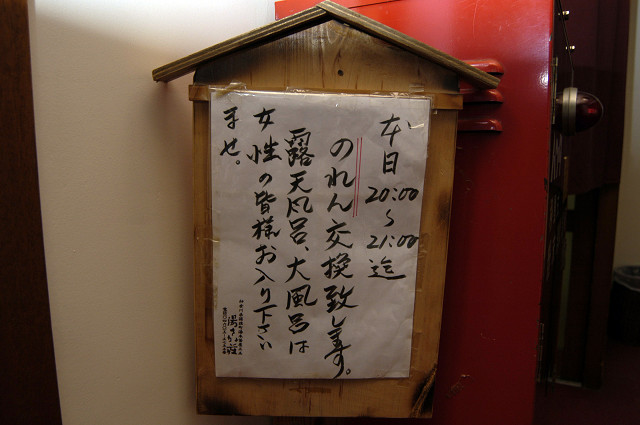 本日20:00~21:00迄
のれん交換致します。
露天風呂、大風呂は
女性の皆様お入り下さい
ませ。